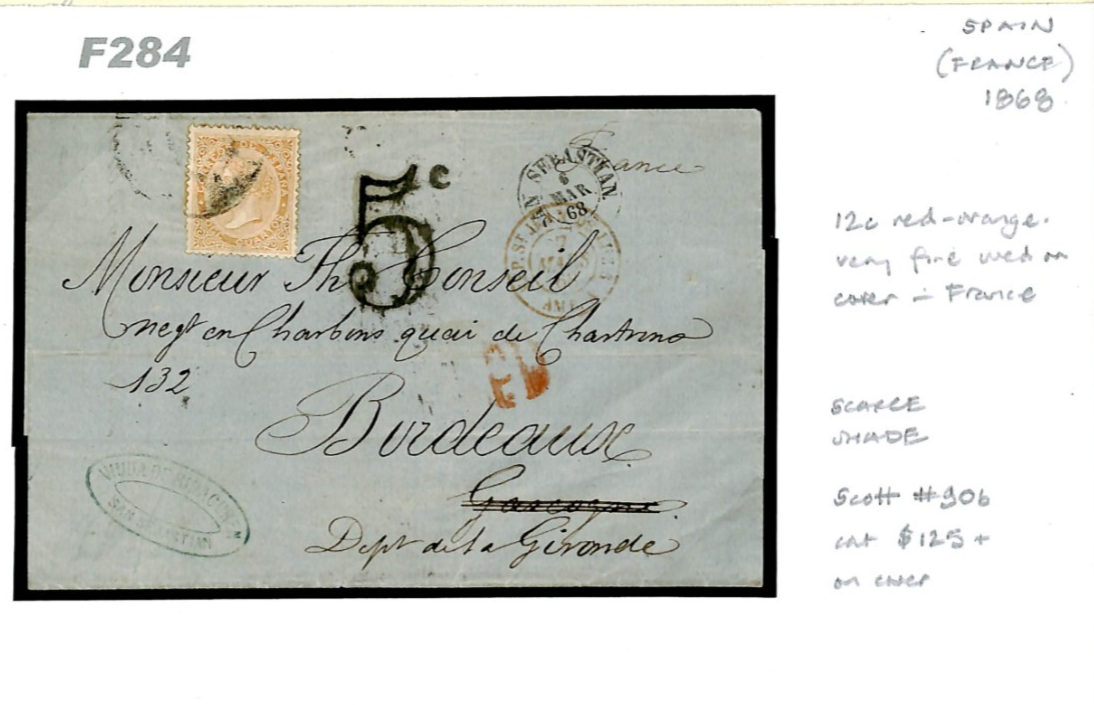 F284
SPAIN
(FRANCE)
1868
12c red-orange.
very fine used on
cover - France
SCARCE
SHADE
Scott #90b
cat $125 +
on cover
CORREOS DE ESPAÑA
CUARTOS
5c
France
SAN SEBASTIAN
6
MAR
68
Monsieur Th. Conseil
Negt en Charbons quai de Chartrons
132
Bordeaux
Gascogne
Dept de la Gironde
VIUDA DE
SAN SEBASTIAN